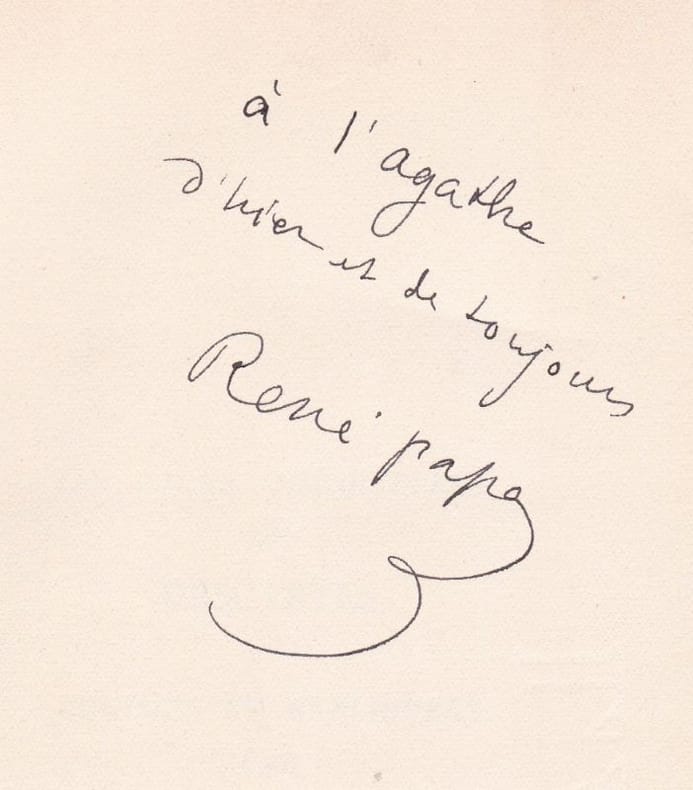 à l'agathe
d'hier et de toujours
René papa